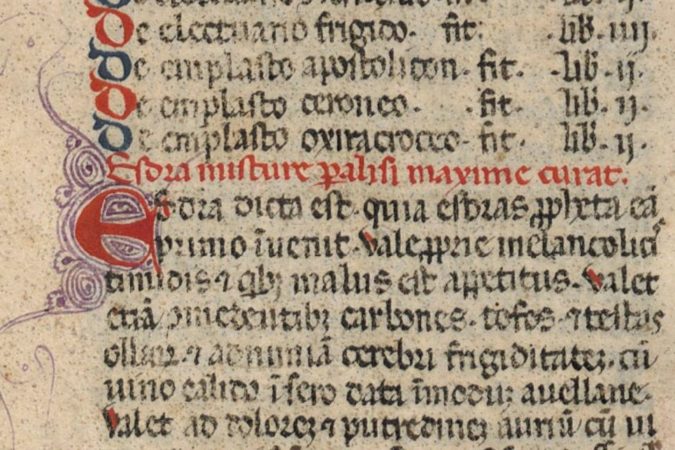 De electuario frigido. fit. lib. iiij.
De emplasto apostolicon. fit. lib. ij.
De emplasto ceroneo. fit. lib. ij.
De emplasto oxiracroceo. fit. lib. ij.
Esdra misture palisi maxime curat.
Esdra dicta est. quia esdras ꝓph̄eta eā
primo īuenit. Vale ꝓprie melancolicis
timidis ⁊ qͥbꝫ malus est appetitus. Valet
etiā comedentibꝫ carbones. tofos. ⁊ testas
ollaꝝ. ⁊ ad nimiā cerebri frigiditateꝫ. cū
uino calido ī sero data ī moduꝫ auellane.
Valet ad doloreꝫ ⁊ putredineꝫ auriū cū ui